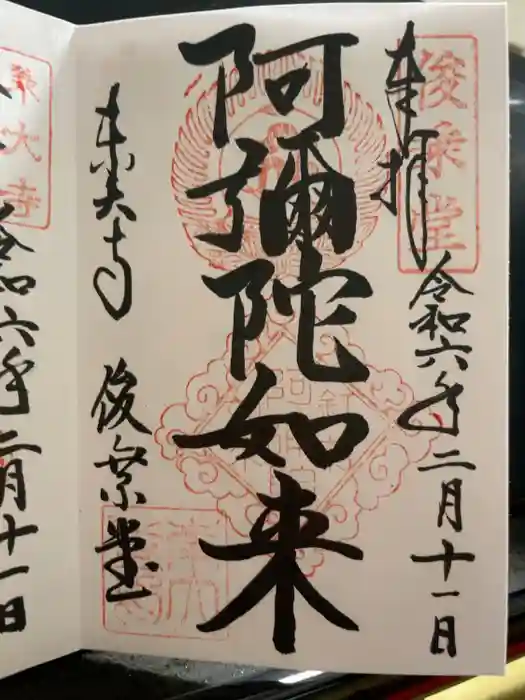 俊乗堂
奉拝
令和六年二月十一日
阿彌陀如来
東大寺
俊乗堂
東大寺
令和六年二月十一日